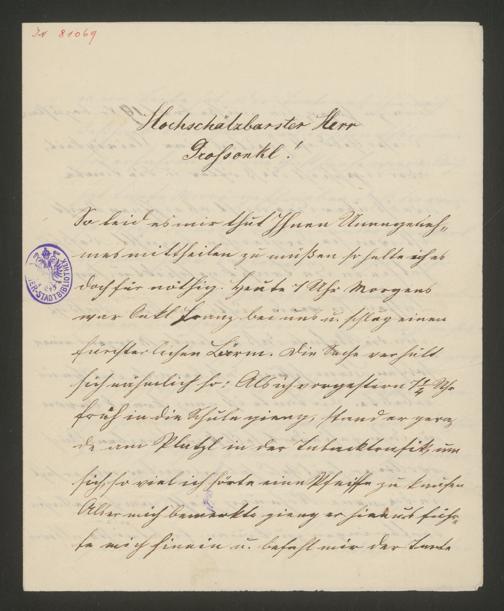 IN 81069
Hochschätzbarster Herr
Grossonkl!
So leid es mir thut Ihnen Unangeneh-
mes mittheilen zu müßen so halte ich es
doch für nöthig. Heute 7 Uhr Morgens
war Onkl Franz bei uns u. schlug einen
fürchterlichen Lärm. Die Sache verhält
sich nähmlich so: Als ich vorgestern 7 Uhr
früh in die Schule gieng, stand er gera-
de am Platzl in der um
sich, so viel ich hörte eine Pfeiffe zu kaufen
Als er mich bemerkte gieng er hin und führ-
te mich hinein u. befahl mir der Tante
STADTBIBLIOTHEK